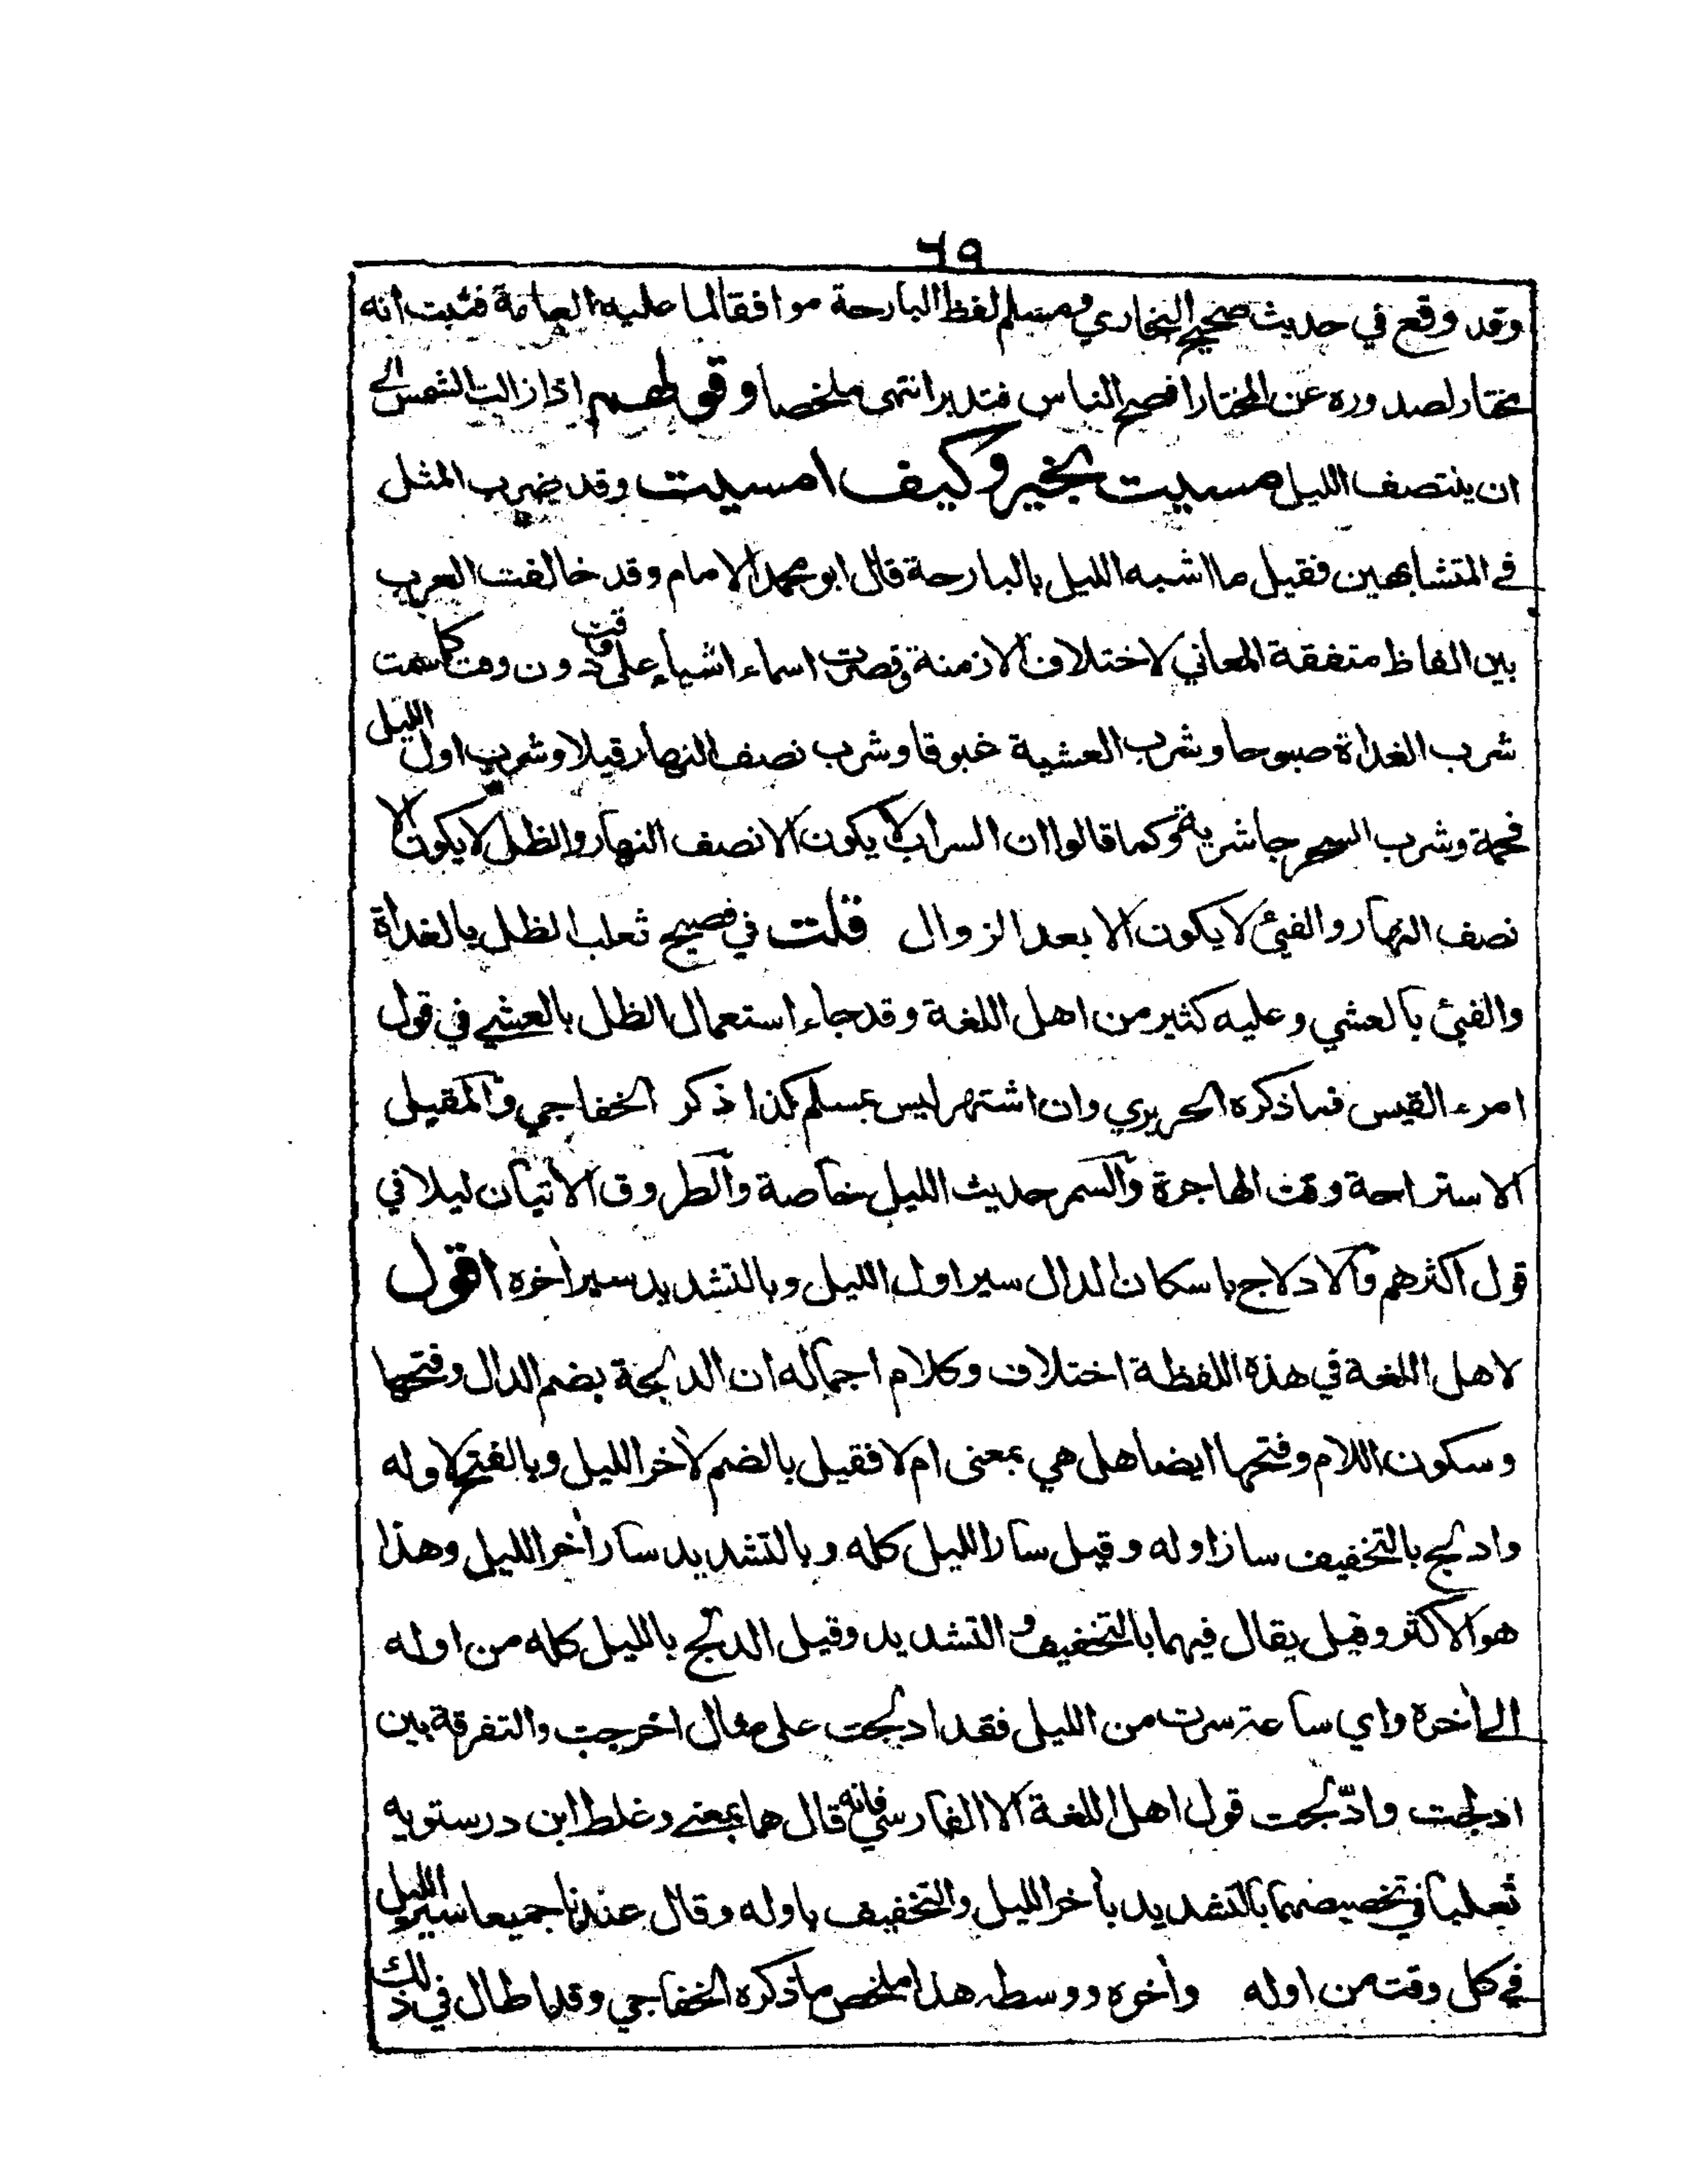 ٦٩
وقد وقع في حديث صحيح البخاري ومسلم لفظ البارحة موافقا لما عليه العامة فثبت انه
مختار لصدوره عن المختار افصح الناس فتدبر انتهى ملخصا وقولهم اذا زالت الشمس الى
ان ينتصف الليل مسيت بخير وكيف امسيت وقد ضرب المثل
في المتشابهين فقيل ما اشبه الليل بالبارحة قال ابو محمد الامام وقد خالفت العرب
بين الفاظ متفقة المعاني لاختلاف الازمنة وقصرت اسماء اشياء على وقت دون وقت كما سمت
شرب الغداة صبوحا وشرب العشية غبوقا وشرب نصف النهار قيلا وشرب اول الليل
فحمة وشرب السحر جاشرية وكما قالوا ان السراب لا يكون الا نصف النهار والظل لا يكون الا
نصف النهار والفيئ لا يكون الا بعد الزوال قلت في فصيح ثعلب الظل بالغداة
والفيئ بالعشي وعليه كثير من اهل اللغة وقد جاء استعمال الظل بالعشي في قول
امرء القيس فما ذكره الحريري وان اشتهر ليس بمسلم كذا ذكر الخفاجي والمقيل
الاستراحة وقت الهاجرة والسمر حديث الليل خاصة والطروق الاتيان ليلا في
قول اكثرهم والادلاج باسكان الدال سير اول الليل وبالتشديد سير اخره اقول
لاهل اللغة في هذه اللفظة اختلاف وكلام اجماله ان الدلجة بضم الدال وفتحها
وسكون اللام وفتحها ايضا هل هي بمعنى ام لا فقيل بالضم لأخر الليل وبالفتح لاوله
وادلج بالتخفيف سار اوله وقيل سار الليل كله وبالتشديد سار أخر الليل وهذا
هو الاكثر وقيل يقال فيهما بالتخفيف والتشديد وقيل الدلج بالليل كله من اوله
الى أخره واي ساعة سرت من الليل فقد ادلجت على مثال اخرجت والتفرقة بين
ادلجت وادّلجت قول اهل اللغة الا الفارسي فانه قال هما بمعنى وغلط ابن درستويه
ثعلبا في تخصيصهما بالتشديد بأخر الليل والتخفيف باوله وقال عندنا جميعا سير الليل
في كل وقت من اوله وأخره ووسطه هذا ملخص ما ذكره الخفاجي وقد اطال في ذلك